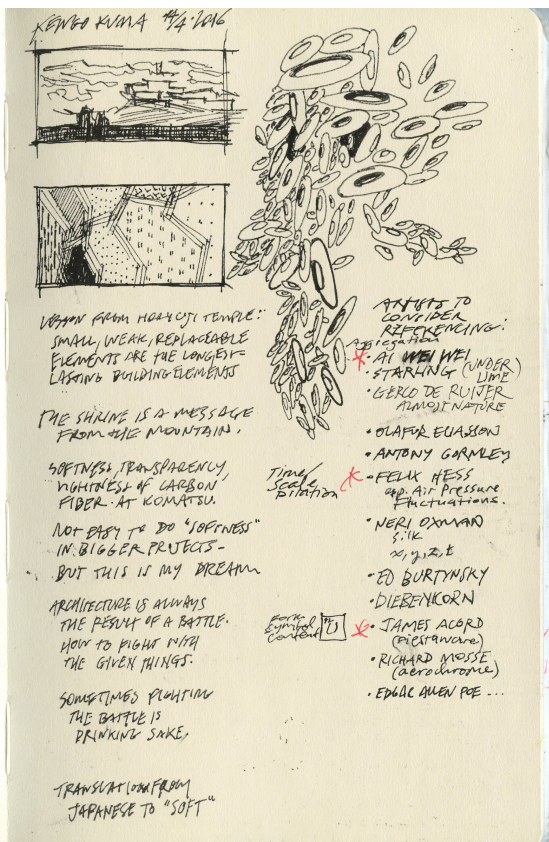 KENGO KUMA 14/4·2016
LESSON FROM HORYUJI TEMPLE:
SMALL, WEAK, REPLACEABLE
ELEMENTS ARE THE LONGEST-
LASTING BUILDING ELEMENTS
THE SHRINE IS A MESSAGE
FROM THE MOUNTAIN.
SOFTNESS, TRANSPARENCY,
LIGHTNESS OF CARBON
FIBER AT KOMATSU.
NOT EASY TO DO "SOFTNESS"
IN BIGGER PROJECTS -
BUT THIS IS MY DREAM
ARCHITECTURE IS ALWAYS
THE RESULT OF A BATTLE.
HOW TO FIGHT WITH
THE GIVEN THINGS.
SOMETIMES FIGHTING
THE BATTLE IS
DRINKING SAKE.
TRANSLATION FROM
JAPANESE TO "SOFT"
ARTISTS TO
CONSIDER
REFERENCING:
Aggregation
· AI WEI WEI
· STARLING (UNDER)
LIME
· GERCO DE RUIJER
ALMOST NATURE
· OLAFUR ELIASSON
· ANTONY GORMLEY
Time/
Scale
Dilation
· FELIX HESS
esp. Air Pressure
Fluctuations.
· NERI OXMAN
silk
x, y, z, t
· ED BURTYNSKY
· DIEBENKORN
Form
Symbol
Content
U
· JAMES ACORD
(fiestaware)
· RICHARD MOSSE
(aerochrome)
· EDGAR ALLEN POE ...